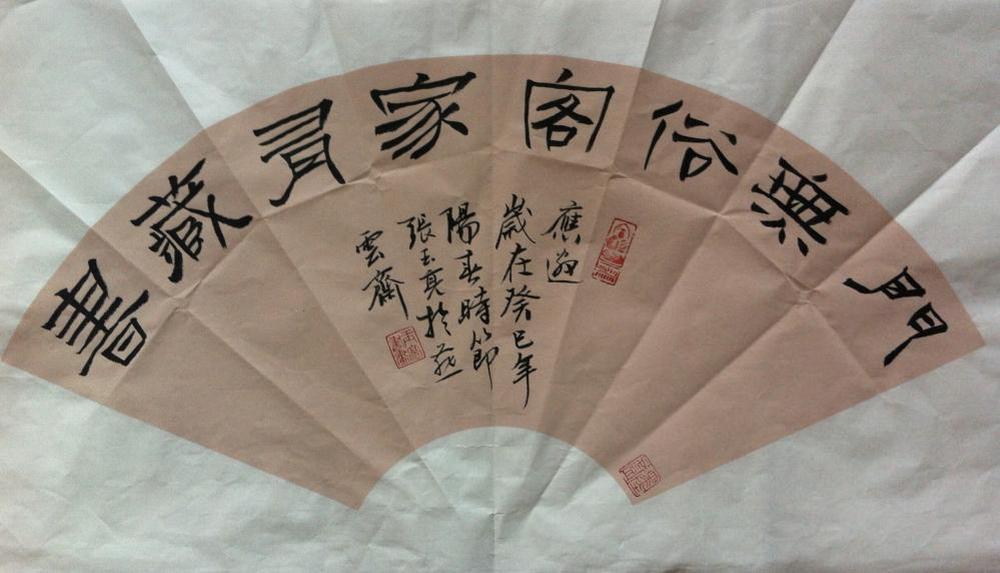 門無俗客家有藏書
應邀
歲在癸巳年
陽春時節
張玉亮於燕
雲齋